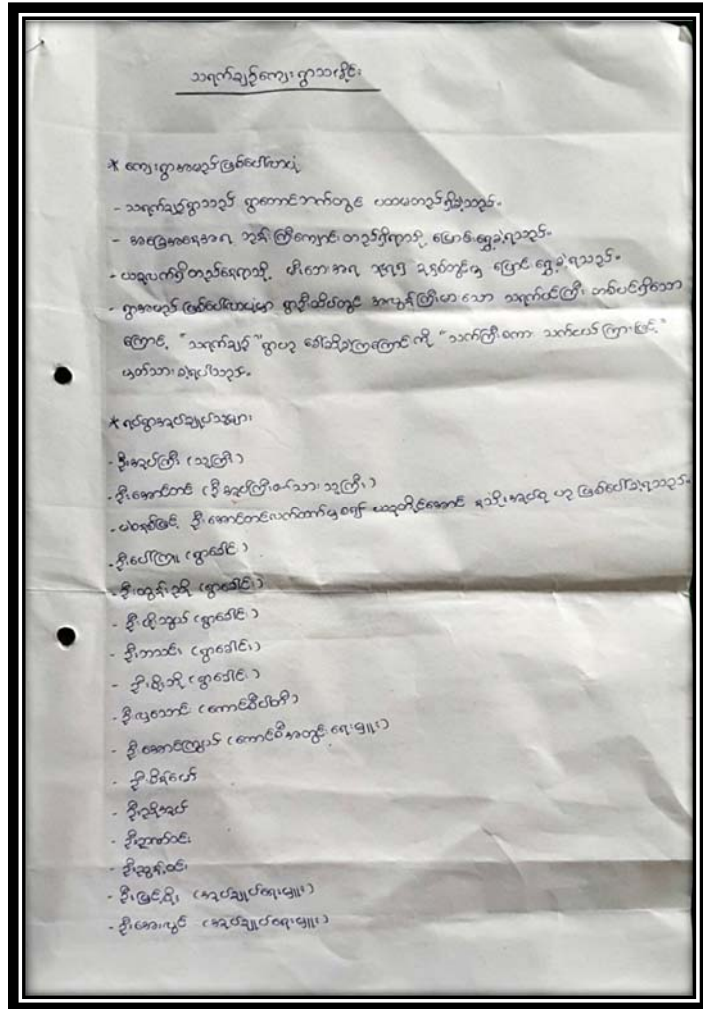 သရက်ချဉ်ကျေးရွာသမိုင်း
* ကျေးရွာအမည်ဖြစ်ပေါ်လာပုံ
- သရက်ချဉ်ရွာသည် ရွာတောင်ဘက်တွင် ပထမတည်ရှိခဲ့သည်။
- အခြေအနေအရ ဘုန်းကြီးကျောင်းတည်ရှိရာသို့ ပြောင်းရွှေ့ခဲ့ရသည်။
- ယခုလက်ရှိတည်နေရာသို့ မီးဘေးအရ ခုနှစ်တွင်မှ ပြောင်းရွှေ့ခဲ့ရသည်။
- ရွာအမည်ဖြစ်ပေါ်လာပုံမှာ ရွာဦးထိပ်တွင် အလွန်ကြီးမားသော သရက်ပင်ကြီး တစ်ပင်ရှိသော
ကြောင့် "သရက်ချဉ်" ရွာဟု ခေါ်ဆိုခဲ့ကြကြောင်းကို "သက်ကြီးစကား သက်ငယ်ကြားဖြင့်"
မှတ်သားခဲ့ရပါသည်။
* ရပ်ရွာအုပ်ချုပ်သူများ
- ဦးအုပ်ကြီး (သူကြီး)
- ဦးအောင်တင် (ဦးအုပ်ကြီး၏သား သူကြီး)
- ဦးအောင်တင်လက်ထက်မှစ၍ ယခုတိုင်အောင် ဟု ဖြစ်ပေါ်ခဲ့ရသည်။
- ဦးပေါ်ကြူ (ရွာခေါင်း)
- ဦးထွန်းညို (ရွာခေါင်း)
- ဦးထိုသွယ် (ရွာခေါင်း)
- ဦးဘသင်း (ရွာခေါင်း)
- ဦးစိုးဘို (ရွာခေါင်း)
- ဦးလှသောင် (ကောင်စီပါတီ)
- ဦးအောင်ကြွယ် (ကောင်စီအတွင်းရေးမှူး)
- ဦးစိန်မော်
- ဦးညိုအုပ်
- ဦးဉာဏ်ဝင်း
- ဦးညွန့်ဝင်း
- ဦးမြင့်စိုး (အုပ်ချုပ်ရေးမှူး)
- ဦးအေးလွင် (အုပ်ချုပ်ရေးမှူး)